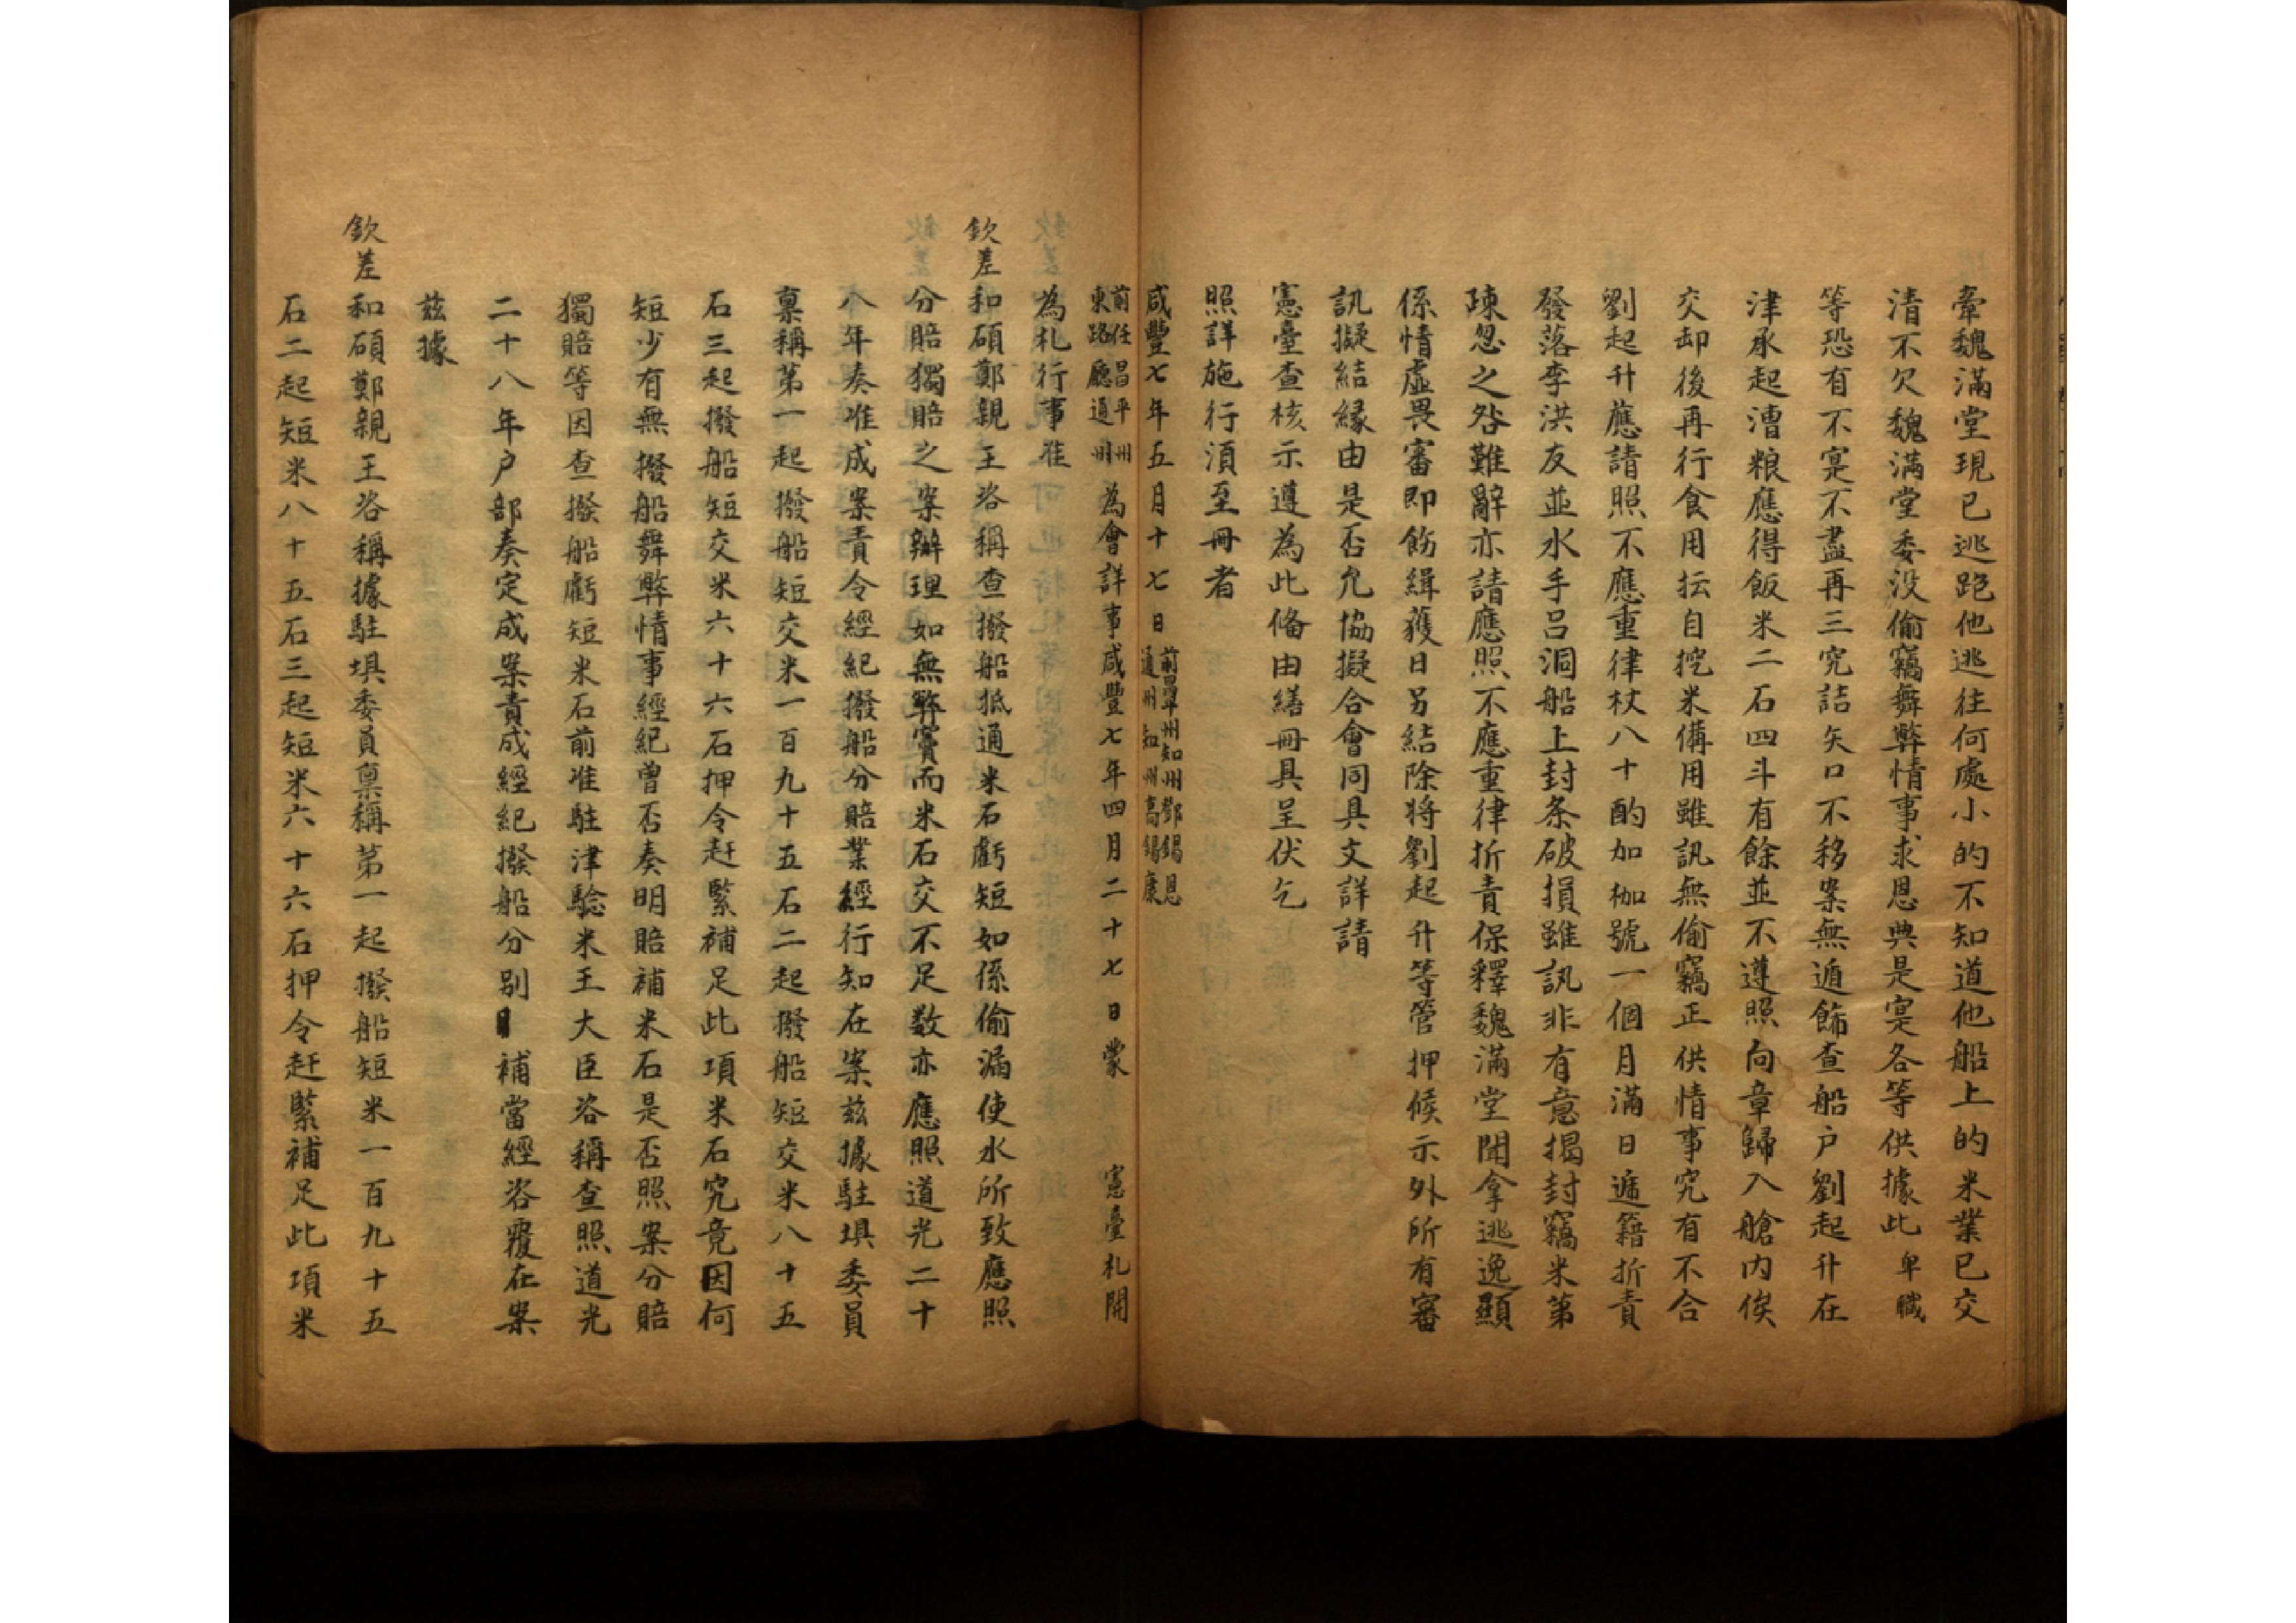 牽魏滿堂現已逃跑他逃往何處小的不知道他船上的米業已交
清不欠魏滿堂委没偷竊舞弊情事求恩典是寔各等供據此卑職
等恐有不寔不盡再三究詰矢口不移案無遁飾查船户劉起升在
津承起漕粮應得飯米二石四斗有餘並不遵照向章歸入艙内俟
交卸後再行食用抎自挖米備用雖訊無偷竊正供情事究有不合
劉起升應請照不應重律杖八十酌加枷號一個月滿日遞籍折責
發落李洪友並水手吕洞船上封条破損雖訊非有意揭封竊米第
疎忽之咎難辭亦請應照不應重律折責保釋魏滿堂聞拿逃逸顯
係情虛畏審即飭緝獲日另結除將劉起升等管押候示外所有審
訊擬結緣由是否允協擬合會同具文詳請
憲臺查核示遵為此俻由繕冊具呈伏乞
照詳施行湏至冊者
咸豐七年五月十七日 前署州知州鄧錫恩 通州知州高錫康
前任昌平州 東路廳通州 為會詳事咸豐七年四月二十七日蒙 憲臺札開
為札行事准
欽差和碩鄭親王咨稱查撥船抵通米石虧短如係偷漏使水所致應照
分賠獨賠之案辦理如無弊竇而米石交不足数亦應照道光二十
八年奏准成案責令經紀撥船分賠業經行知在案兹據駐垻委員
禀稱第一起撥船短交米一百九十五石二起撥船短交米八十五
石三起撥船短交米六十六石押令赶緊補足此項米石究竟因何
短少有無撥船舞弊情事經紀曾否奏明賠補米石是否照案分賠
獨賠等因查撥船虧短米石前准駐津驗米王大臣咨稱查照道光
二十八年户部奏定成案責成經紀撥船分别補當經咨覆在案
兹據
欽差和碩鄭親王咨稱據駐垻委員禀稱第一起撥船短米一百九十五
石二起短米八十五石三起短米六十六石押令赶緊補足此項米